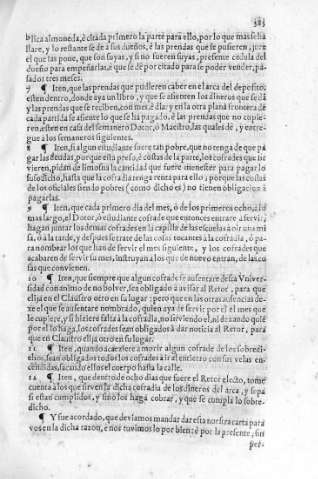 383
blica almoneda, é citada primero la parte para ello, por lo que mas se ha
llare, y lo restante se dé a sus dueños, è las prendas que se pusieren, jure
el que las pone, que son suyas, y si no fueren suyas, presente cedula del
dueño para empeñarlas, è que se dè por citado para se poder vender, pa-
sados tres meses.
7 ¶ Iten, que las prendas que pudieren caber en el arca del deposito,
esten dentro, donde aya un libro, y que se asienten los dineros que se dà
y las prendas que se reciben, con mes, è dia: y en la otra plana frontera de
cada partida se asiente lo que se ha pagado, è las prendas que no cupie-
ren, esten en casa del semanero Dotor, ò Maestro, las quales dè, y entre-
gue a los semaneros siguientes.
8 ¶ Iten, si algun estudiante fuere tan pobre, que no tenga de que pa
gar las deudas, porque està preso, è costas de la parte, los cofrades que sir
vieren, pidan de limosna la cantidad que fuere menester para pagar lo
susodicho, hasta que la cofradia tenga renta para ello; porque las costas
de los oficiales siendo pobres (como dicho es) no tienen obligacion à
pagarlas.
9 ¶ Iten, que cada primero dia del mes, ò de los primeros ocho, à lo
mas largo, el Dotor, ò estudiante cofrade que entonces entrare a servir,
hagan juntar los demas cofrades en la capilla de las escuelas a oir una mi
sa, ò a la tarde, y despues tratar de las cosas tocantes à la cofradia, ò pa-
ra nombrar los que han de servir el mes siguiente, y los cofrades que
acabaren de servir su mes, instruyan a los que de nuevo entran, de las co
sas que convienen.
10 ¶ Iten, que siempre que algun cofrade se ausentare desta Univer-
sidad con animo de no bolver, sea obligado à avisar al Retor, para que
elijan en el Claustro otro en su lugar: pero que en las otras ausencias de-
xe el que se ausentare nombrado, quien aya de servir por el el mes que
le cupiere, y si hiciere falta à la cofradia, no sirviendo el, ni dexando quiè
por el lo haga, los cofrades sean obligados à dar noticia al Retor, para
que en Claustro elija otro en su lugar.
11 ¶ Iten, quando acaeciere a morir algun cofrade de los sobredi-
chos, sean obligados todos los cofrades à ir al entierro con sus velas en-
cendidas, sacando ellos el cuerpo hasta la calle.
12 ¶ Iten, que dentro de ocho dias que fuere el Retor electo, tome
cuenta a los que sirven la dicha cofradia de los dineros del arca, y sepa
si estan cumplidos, y si no los haga cobrar, y que se cumpla lo sobre-
dicho.
¶ Y fue acordado, que deviamos mandar dar esta nuestra carta para
vos en la dicha razon, è nos tuvimos lo por bien: è por la presente, sin
per-